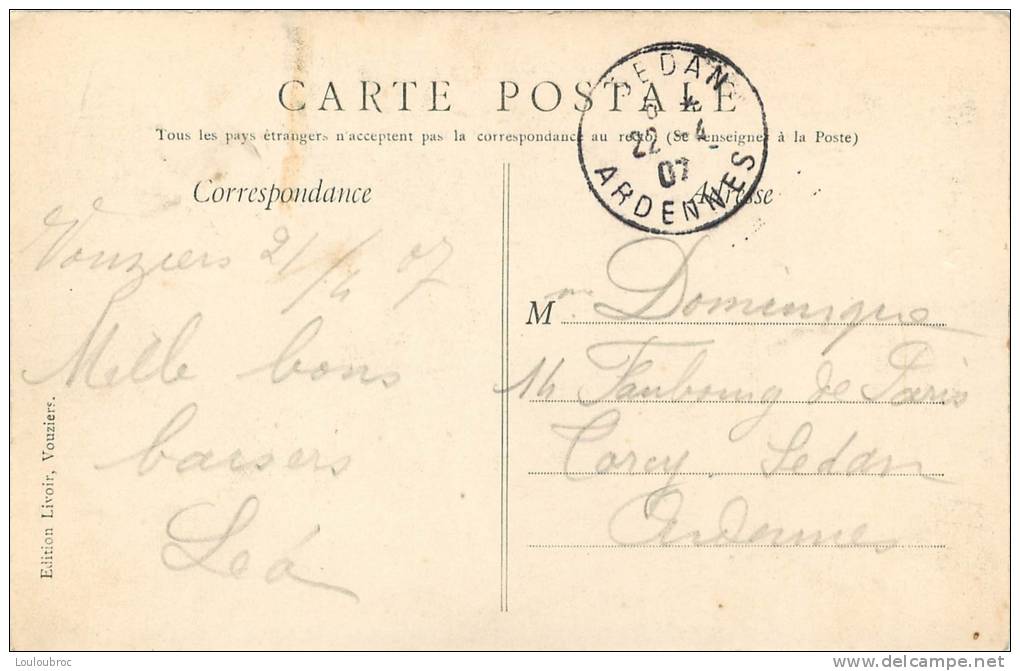 CARTE POSTALE
Tous les pays étrangers n'acceptent pas la correspondance au recto. (Se renseigner à la Poste)
SEDAN
22 -4
07
ARDENNES
Correspondance
Vouziers 21/4 07
Mille bons
baisers
Léa
Edition Livoir, Vouziers.
Adresse
Mme Dominique
14 Faubourg de Paris
Torcy. Sedan
Ardennes
Louloubroc
www.delcampe.net